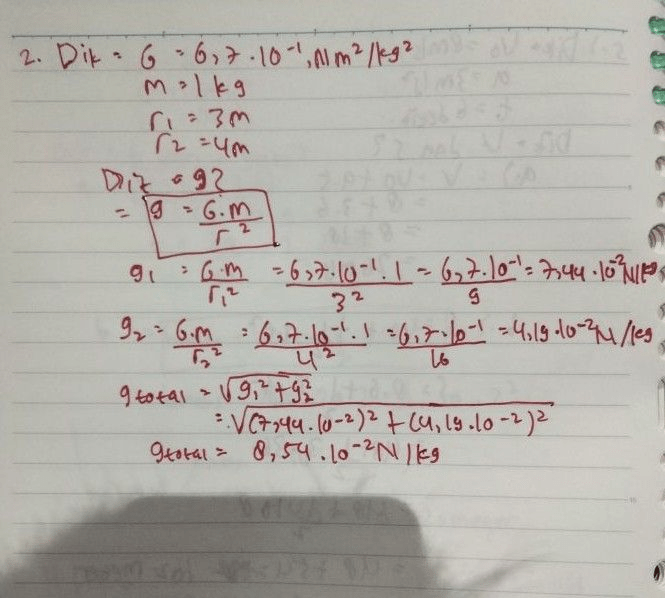 2. Dik = G = 6,7 . 10⁻¹, Nm²/kg²
m = 1 kg
r₁ = 3m
r₂ = 4m
Dit = g?
= g = G.m / r²
g₁ = G.m / r₁² = 6,7.10⁻¹.1 / 3² = 6,7.10⁻¹ / 9 = 7,44 . 10⁻² N/kg
g₂ = G.m / r₂² = 6,7.10⁻¹.1 / 4² = 6,7.10⁻¹ / 16 = 4,19.10⁻² N/kg
g total = √g₁² + g₂²
= √(7,44.10⁻²)² + (4,19.10⁻²)²
g total = 8,54 . 10⁻² N/kg